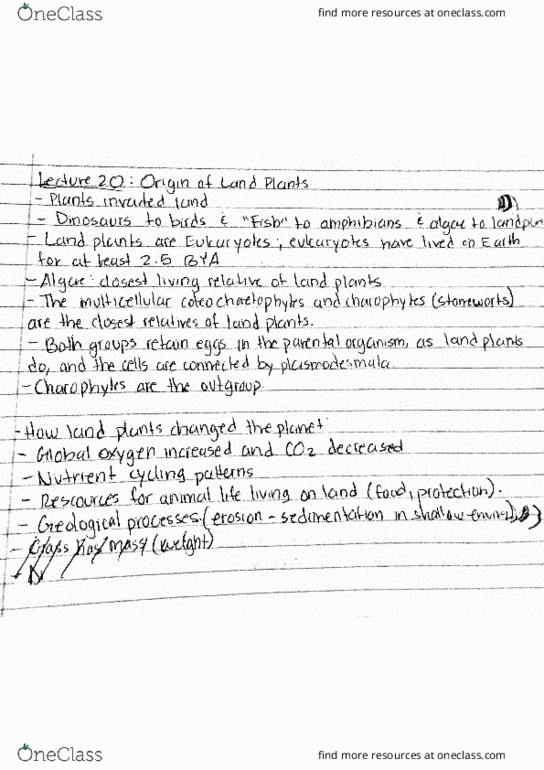 OneClass
find more resources at oneclass.com
Lecture 20: Origin of Land Plants
- Plants invaded land
- Dinosaurs to birds & "Fish" to amphibians & algae to landplan
- Land plants are Eukaryotes, eukaryotes have lived on Earth
for at least 2.5 BYA
- Algae: closest living relative of land plants
- The multicellular coleochaetophytes and charophytes (stoneworts)
are the closest relatives of land plants.
- Both groups retain eggs in the parental organism, as land plants
do, and the cells are connected by plasmodesmata.
- Charophytes are the outgroup.
- How land plants changed the planet
- Global oxygen increased and CO2 decreased
- Nutrient cycling patterns
- Rescources for animal life living on land (food, protection).
- Geological processes (erosion - sedimentation in shallow
- Glass has mass (weight)
OneClass
find more resources at oneclass.com